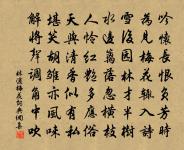 吟懷長恨負芳時
為見梅花輒入詩
雪後園林才半樹
水邊籬落忽橫枝
人憐紅艷多應俗
天與清香似有私
堪笑胡雛亦風味
解將聲調角中吹
林逋梅花